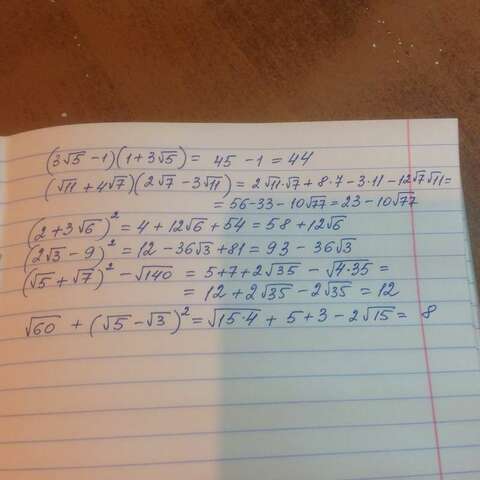 (3√5 - 1)(1 + 3√5) = 45 - 1 = 44
(√11 + 4√7)(2√7 - 3√11) = 2√11·√7 + 8·7 - 3·11 - 12√7√11 =
= 56 - 33 - 10√77 = 23 - 10√77
(2 + 3√6)² = 4 + 12√6 + 54 = 58 + 12√6
(2√3 - 9)² = 12 - 36√3 + 81 = 93 - 36√3
(√5 + √7)² - √140 = 5 + 7 + 2√35 - √4·35 =
= 12 + 2√35 - 2√35 = 12
√60 + (√5 - √3)² = √15·4 + 5 + 3 - 2√15 = 8